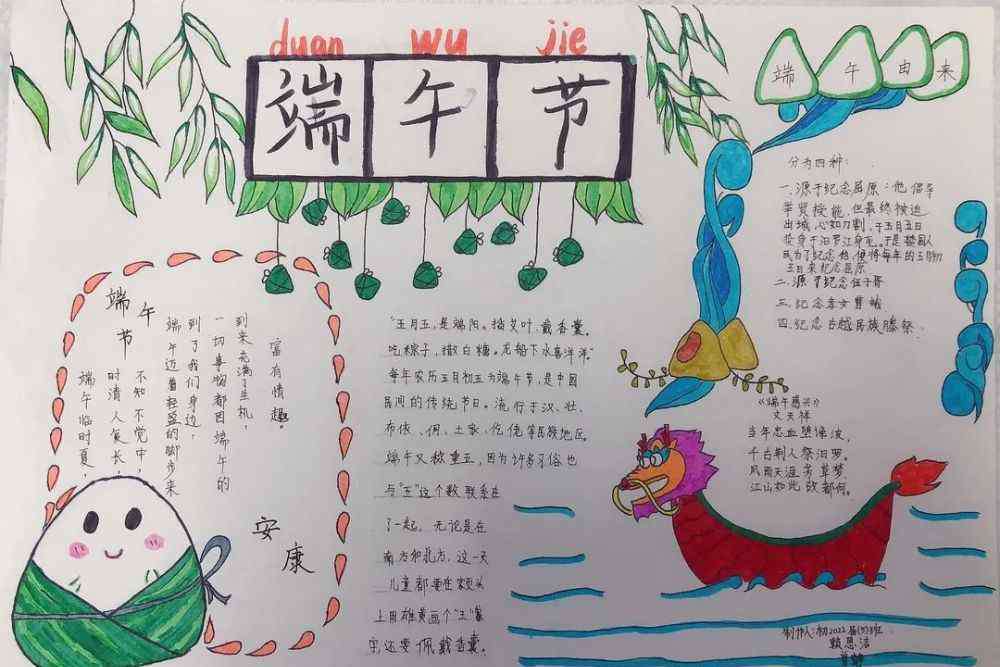 duan wu jie
端午节
端午
节
端午临时夏，
时清人复长，
不知不觉中，
端午迈着轻盈的脚步来
到了我们身边，
一切事物都因端午的
到来充满了生机，
富有情趣。
安康
"五月五，是端阳。插艾叶，戴香囊。
吃粽子，撒白糖。龙船下水喜洋洋。"
每年农历五月初五为端午节，是中国
民间的传统节日。流行于汉、壮、
布依、侗、土家、仡佬等民族地区。
端午又称重五，因为许多习俗也
与"五"这个数联系在
了一起，无论是在
南方和北方，这一天
儿童都要在额头
上用雄黄画个"王"
字，还要佩戴香囊。
端午由来
分为四种：
一、源于纪念屈原：他倡导
举贤授能，但最终被迫
出城，心如刀割，于五月五日
投身于汨罗江身死。于是楚国人
民为了纪念他，便将每年的五月初
五日来纪念屈原
二、源于纪念伍子胥
三、纪念孝女曹娥
四、纪念古越民族腾祭
《端午感兴》
文天祥
当年忠血堕谗波，
千古荆人祭汨罗。
风雨天涯芳草梦，
江山如此故都何。
制作人：初2022届(7)班